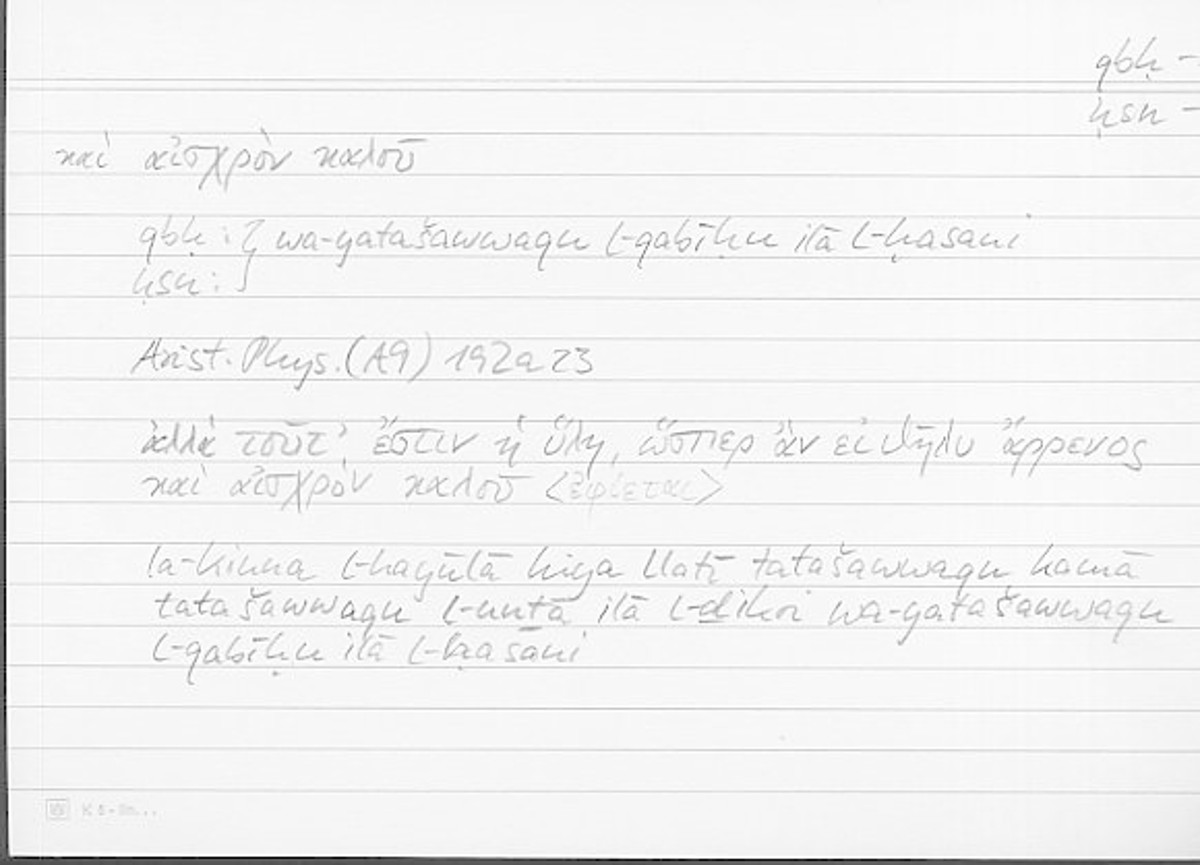 qbḥ –
ḥsn –
καὶ αἰσχρὸν καλοῦ
qbḥ : } wa-yatašawwaqu l-qabīḥu ilā l-ḥasani
ḥsn :
Arist. Phys. (A9) 192a23
ἀλλὰ τοῦτ’ ἔστιν ἡ ὕλη, ὥσπερ ἂν εἰ θῆλυ ἄρρενος
καὶ αἰσχρὸν καλοῦ <ἐφίεται>
la-kinna l-hayūlā hiya llatī tatašawwaqu kamā
tatašawwaqu l-unṯā ilā l-ḏikri wa-yatašawwaqu
l-qabīḥu ilā l-ḥasani